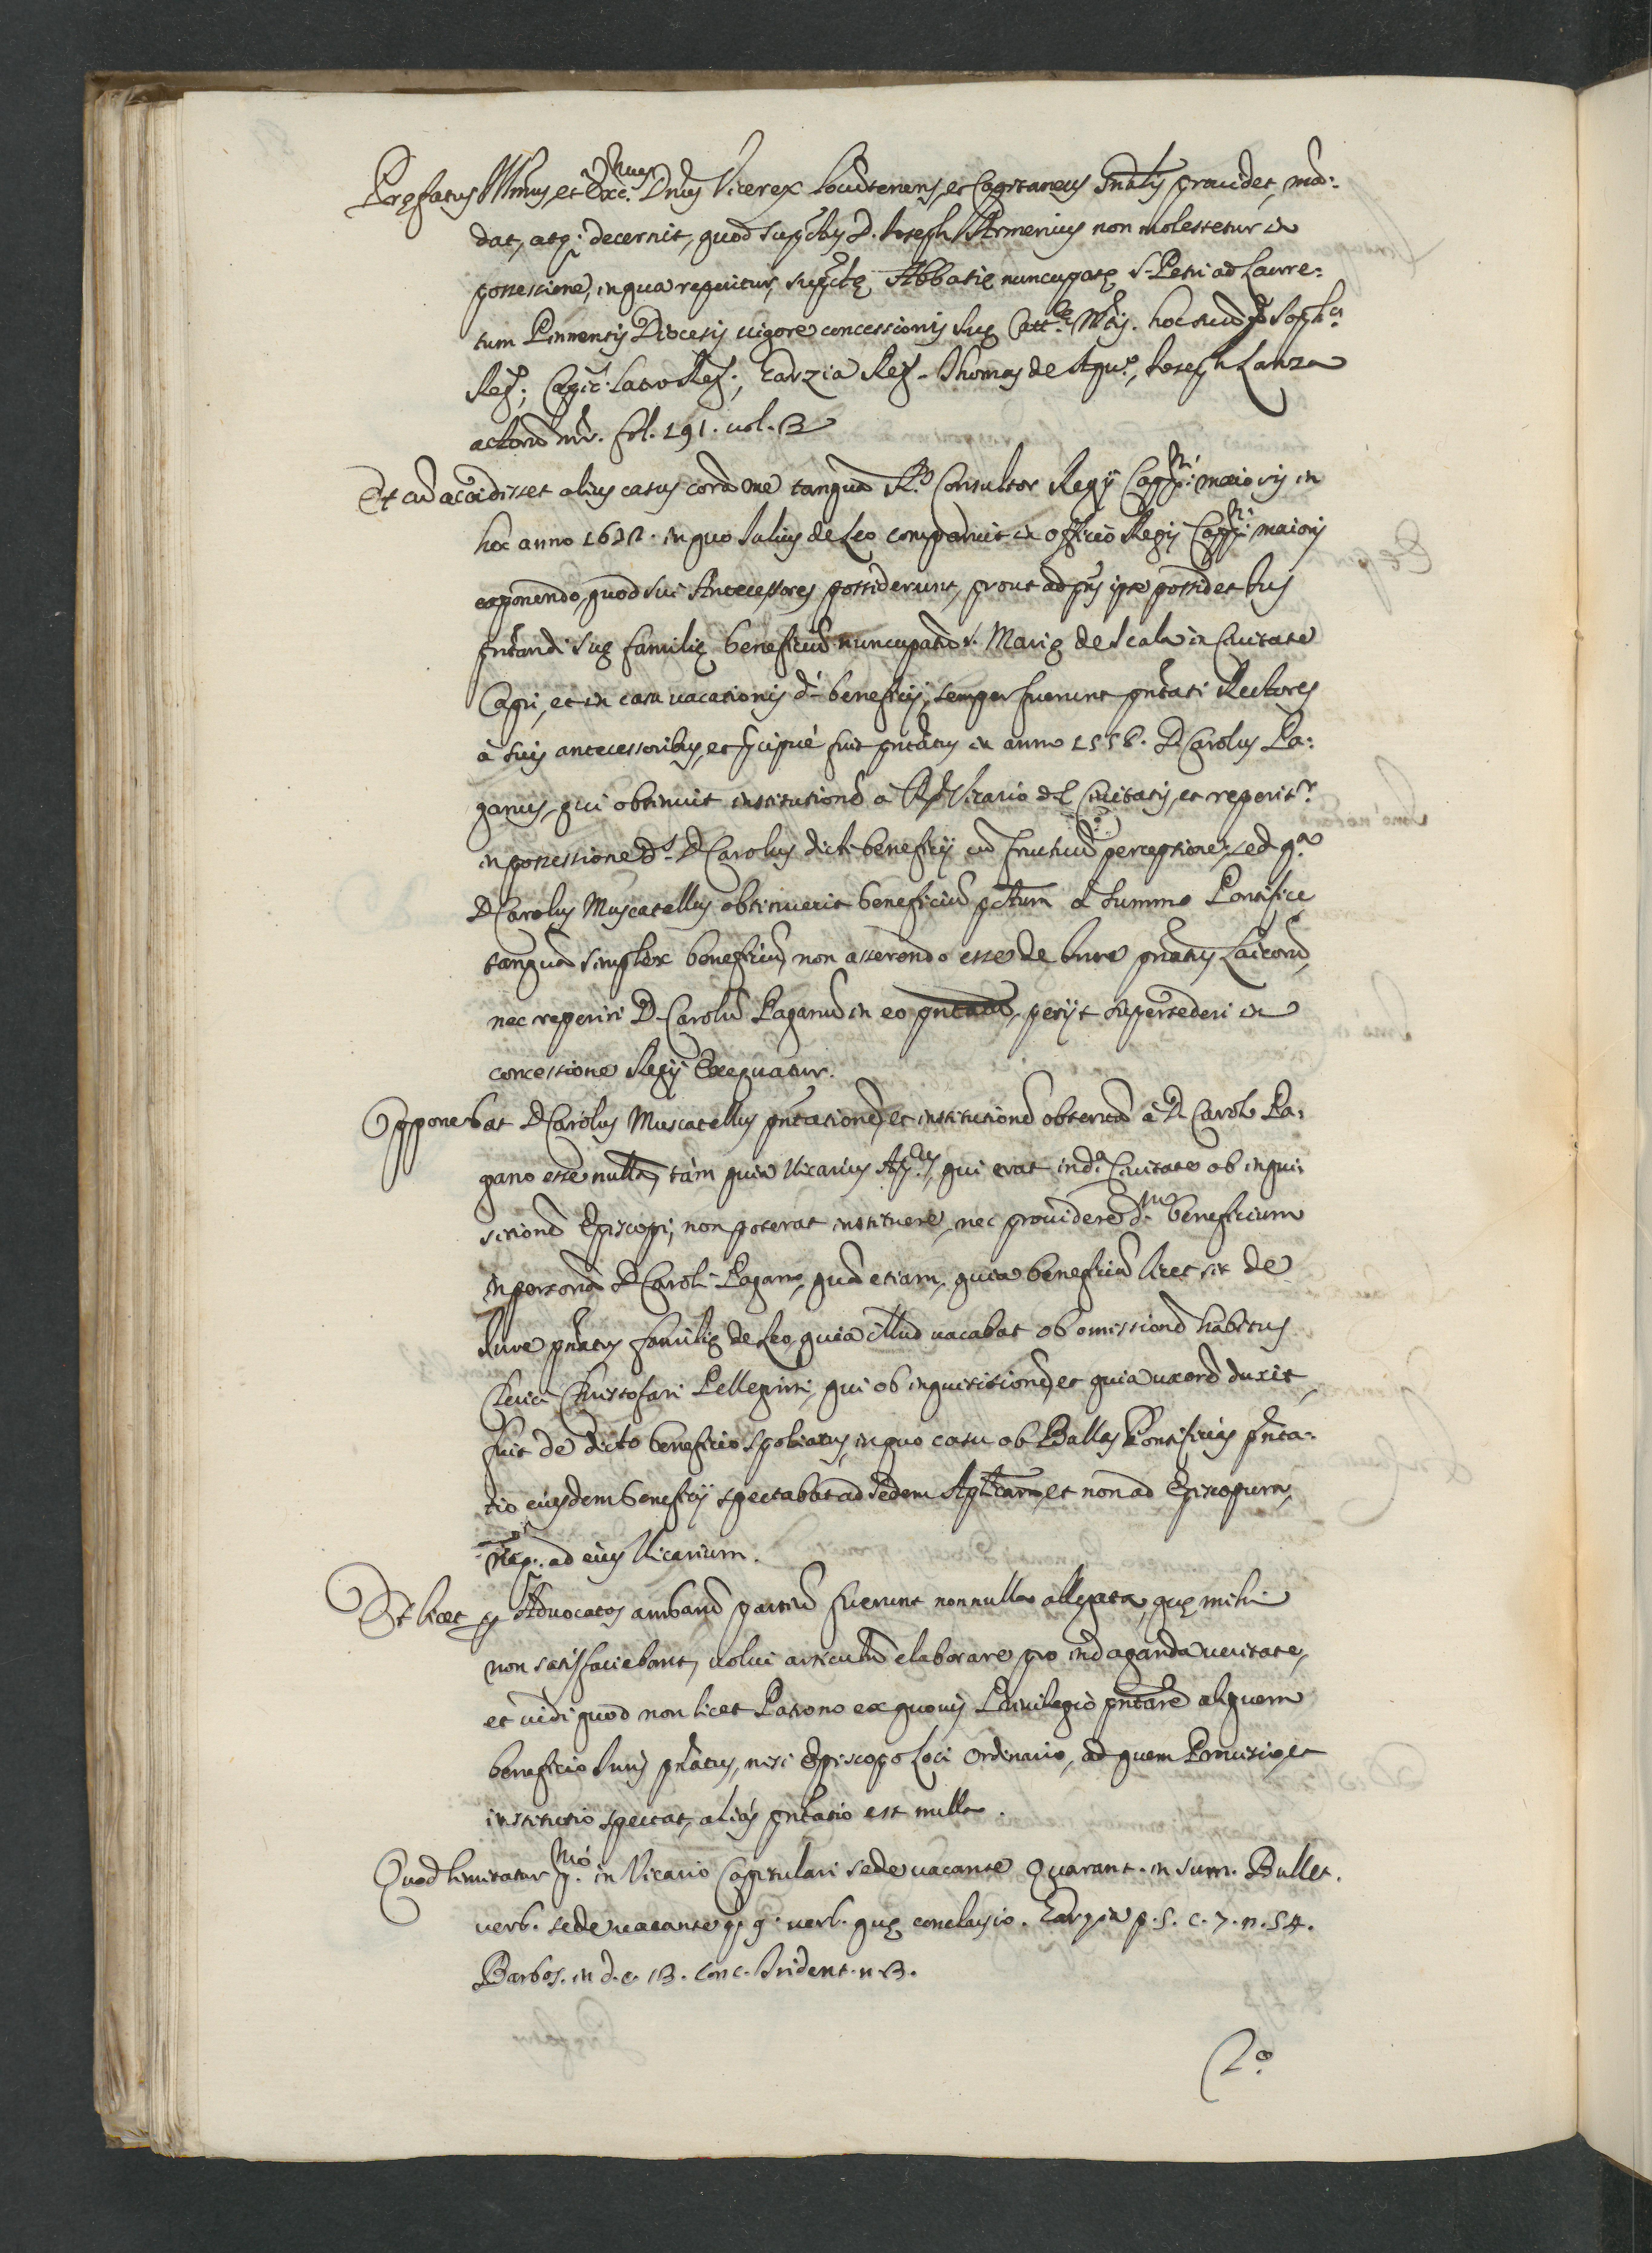 Pręfatus Ill.mus, et Exc.mus Dn̄us Vicerex locūtenens, et Capitaneus gn̄alis prouidet, mā:
dat, atq; decernit, quod sup.tus D. Ioseph Armenius non molestetur in
possessione, in qua reperitur, sup.tę Abbatię nuncupatę S. Petri ad Laure:
tum Pinnensis Diocesis uigore concessionis suę Catt.cę M.tis. hoc suū
Reg.; Capic. Latro Reg.; Garzia Reg. Thomas de Aqu.o, Ioseph Lanza
actorū mr. fol. 191. uol. 13
Et cū accidisset alius casus corā me tanquā R.o Consultor Regij Capp.ni maioris in
hoc anno in quo Iulius de Leo comparuit in officio Regij Capp.ni maioris
exponendo, quod sui Antecessores possiderunt, prout ad pn̄s ipse possidet Ius
pn̄tandi suę familię beneficiū nuncupatū S. Marię de Scala in Ciuitate
Capri, et in casu uacationis d.i beneficij, semper fuerunt pn̄tati Rectores
à suis antecessoribus, et pcipuè fuit pn̄tatus in anno 1556. D. Carolus Pa:
ganus, qui obtinuit institutionē à Vicario d.e Ciuitatis, et reperit.r
in possessione d.s D. Carolus dicti beneficij cū fructuū perceptione; sed q.a
D. Carolus Muscatellus obtinuerit beneficiū p.tum à Summo Pontifice
tanquā simplex beneficiū, non asserendo esse de Iure pn̄atus Laicorū,
nec reperiri D. Carolū Paganū in eo pn̄tatū, petijt supersederi in
concessione Regij Exequatur.
Opponebat D. Carolus Muscatellus pn̄tationē, et institutionē obtentā à D. Carolo Pa:
gano esse nullā, tàm quia Vicarius Ap.cus, qui erat in d.a Ciuitate ob inqui:
sitionē Episcopi, non poterat instituere, nec prouidere d.m beneficium
in personā D. Caroli Pagano, quā etiam, quia beneficiū licet sit de
Iure pn̄atus familię de Leo, quia illud uacabat ob omissionē habitus
Clerici Christofari Pellegrini, qui ob inquisitionē, et quia uxorē duxit,
fuit de dicto beneficio spoliatus, in quo casu ob Bullas Pontificias pn̄ta:
tio eiusdem beneficij spectabat ad Sedem Ap.licam, et non ad Episcopum,
neq. ad eius Vicarium.
Et licet p Aduocatos ambarū partiū fuerunt nonnulla allegata, quę mihi
non satisfaciebant, uolui articulū elaborare pro indaganda ueritate,
et uidi quod non licet Patrono ex quouis Priuilegio pn̄tare aliquem
beneficio Iuris pn̄atus, nisi Episcopo Loci Ordinario, ad quem Prouisio, et
institutio spectat, aliàs pn̄tatio est nulla.
Quod limitatur p.mò in Vicario Capitulari sede uacante Quarant. in Sum. Bullar.
uerb. sede uacante uerb. quę conclusio. Garzia p. 5. c. 7. n. 54.
Barbos. in d. c. 13. Conc. Trident. n. 13.
2.o